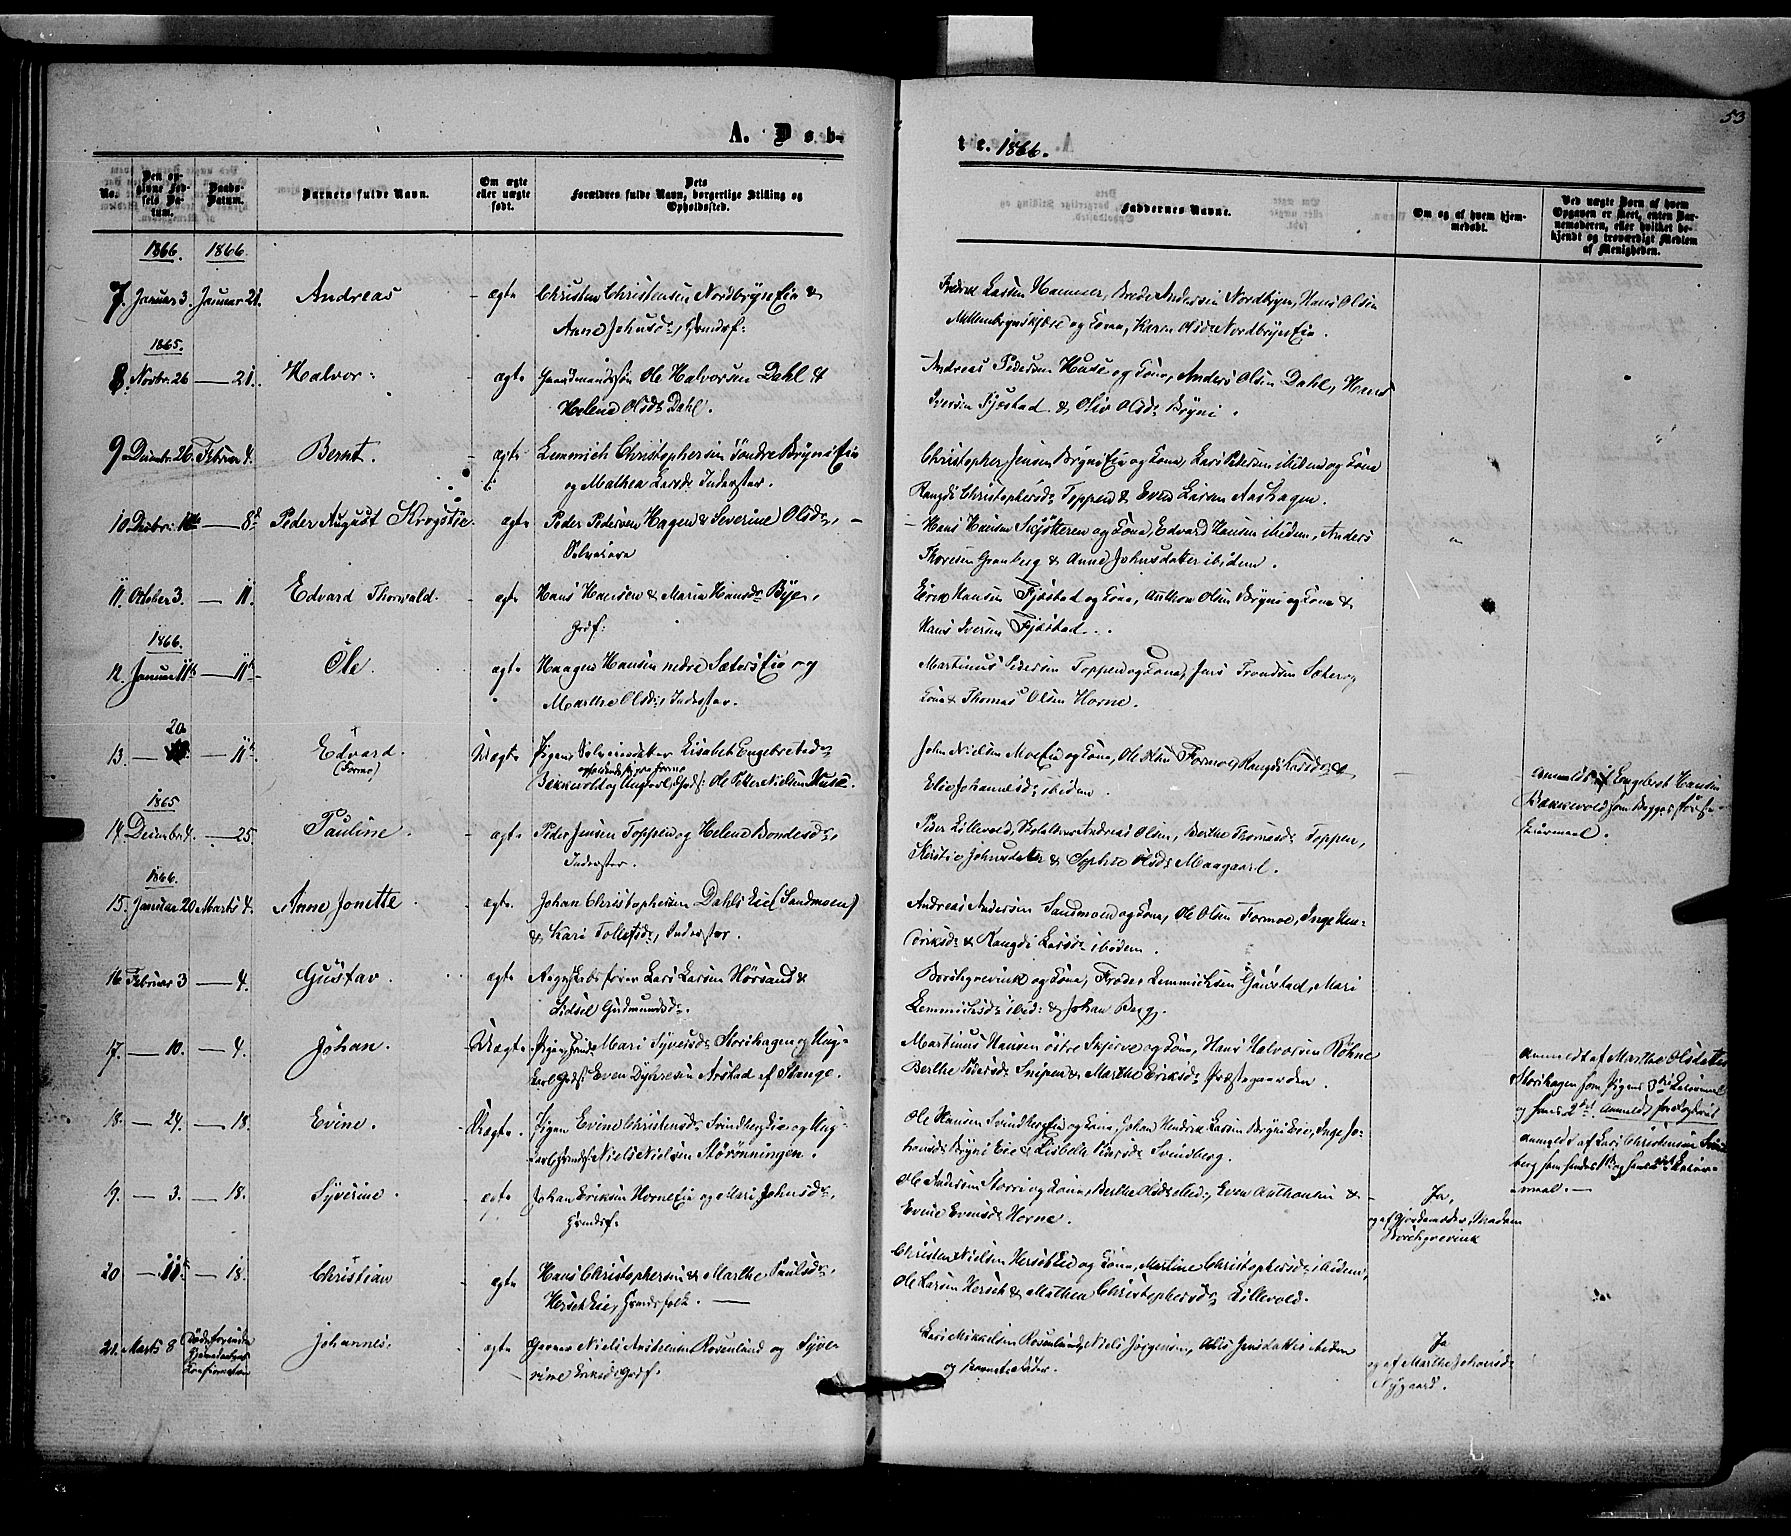 53
A. Døb-
te. 1866.
No.
Den opgivne Fødsels Datum.
Daabs-Datum.
Barnets fulde Navn.
Om ægte eller uægte født.
Dets Forældres fulde Navn, borgerlige Stilling og Opholdssted.
Faddernes Navne.
Om og af hvem hjemmedøbt.
Ved uægte Børn af hvem Opgaven er skeet, enten Barnemoderen, eller hvilket bekjendt og troværdigt Medlem af Menigheden.
1866. 1866.
7. Januar 3. Januar 21. Andreas - ægte Christen Christensen Nordbryn Eie &
Anne Johnsd:, Huusmdsf:
Fredrik Larsen Hammer, Brede Andersen Nordbyen, Hans Olsen
og Kone, Karen Olsd: Nordbryn Eie.
1865.
8. Novbr. 26 — 21. Halvor: - ægte Gaardmandssøn Ole Halvorsen Dahl &
Helene Olsd: Dahl.
Andreas Pedersen Huse og Kone, Anders Olsen Dahl, Hans
Iversen Fjøstad & Oliv Olsd: Bryni.
9 Decembr. 26. Februar 4. Bernt. - ægte Lemmich Christophersen Søndre Bryns Eie
og Mathea Larsd: Inderster.
Christopher Jensen Bryns Eie og Kone, Lars Pedersen ibidem og Kone
Rangdi Christophersd: Toppen & Even Larsen Aashagen.
10 Decbr. — 8de Peder August Krogstie. ægte Peder Pedersen Hagen & Severine Olsd:, —
Selveiere
Hans Hansen Skjötteren og Kone, Edvard Hansen ibidem, Anders
Thoresen Granberg & Anne Johnsdatter ibidem.
11. October 3. — 11. Edvard Thorvald. - ægte Hans Hansen & Maria Hansd: Bye,
Grdf:
Eirik Hansen Fjøstad og Kone, Anthon Olsen Bryni og Kone &
Hans Iversen Fjøstad.
1866.
12. Januar 11te — 11te Ole. ægte Haagen Hansen nedre Sæters Eie og
Marthe Olsd:, Inderster.
Martinus Pedersen Toppen og Kone, Jens Trondsen Sæter og
Kone & Thomas Olsen Horne.
20
13. — — 11te Edvard. Uægte Pigen Selveierdatter Lisabeth Engebretsd:
(Formo)
Bakkevold og Ungkarl, Grds: Ole Peter Nielsen Huse.
John Nielsen Moe Eie og Kone, Ole Formo, Rangdi Larsd: &
Elie Johannesd: ibidem.
anmeldt af Engebret Hansen
Bakkevold som Begges første
Leiermaal.
1865
14. Decembr 4. — 25. Pauline. ægte Peder Jensen Toppen og Helene Bondesd:,
Inderster.
Peder Lillevold, Andreas Olsen, Berthe Thomasd: Toppen,
Kirstie Johnsdatter & Sophie Olsd: Maagaard.
1866.
15. Januar 20 Marts 4. Anne Jonette. ægte. Johan Christophersen Dahls Eie (Sandmoen)
& Kari Tollefsd:, Inderster.
Andreas Andersen Sandmoen og Kone, Ole Olsen Formoe, Inge Hen-
driksd: & Rangdi Larsd: ibidem.
16 Februar 3 — 4. Gustav. ægte Lars Larsen Hørsand &
Sidsel Gudmundsd:.
Borchgrevink og Kone, Frøder Lemmichsen Gaustad, Mari
Lemmichsd: ibid: & Johan Berg.
17. — 10. — 4. Johan. - Uægte Pigen Mari Syversd: Storihagen og Ung-
karl Grds: Even Dyhresen Arstad af Stange.
Martinus Hansen østre Skjerve og Kone, Hans Halvorsen Røhne
Berthe Pedersd: Snipen & Marthe Eriksd: Præstegaarden.
Anmeldt af Marthe Olsdatter
Storihagen som Pigens Leiermaal
og hans 2det.
18. — 24. — 18. Evine. - Uægte. Pigen Evine Christensd: Svindberg Eie og Ung-
karl Niels Nielsen Størönningen.
Ole Hansen Svindberg Eie og Kone, Johan Hendrik Larsen Bryni Eie, Inge Jo-
hansd: Bryni Eie & Lisbeth Pedersd: Svindberg.
anmeldt af Lars Christensen Svind-
berg som hendes 1ste og hans Leier-
maal. —
19. — 3. — 18. Syverine. ægte Johan Eriksen Horne Eie og Mari Johnsd:,
Huusmdsf:
Ole Andersen Storri og Kone, Berthe Olsd: ibid:, Even Anthonsen &
Evine Evensd: Horne.
Ja,
og af Gjordemoder, Madam
Borchgrevink
20 — 11te — 18. Christian - ægte Hans Christophersen & Marthe Paulsd:,
Herset Eie, Huusmdsfolk. —
Christen Nielsen Herset Eie og Kone, Martine Christophersd: ibidem,
Ole Larsen Herset & Mathea Christophersd: Lillevold.
21. Marts 8 Johannes. - ægte Gaardmd Niels Andersen Rosenlund og Syve-
rine Eriksd: Grdf.
Lars Mikkelsen Rosenlund, Niels Jörgensen, Jensdatter ibidem
og Barnets Fader.
Ja
og af Marthe Johansd:
Nygaard.